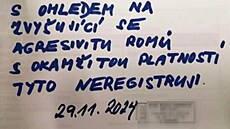 S OHLEDEM NA
ZVYŠUJÍCÍ SE
AGRESIVITU ROMŮ
S OKAMŽITOU PLATNOSTÍ
TYTO NEREGISTRUJI.
29.11.2024